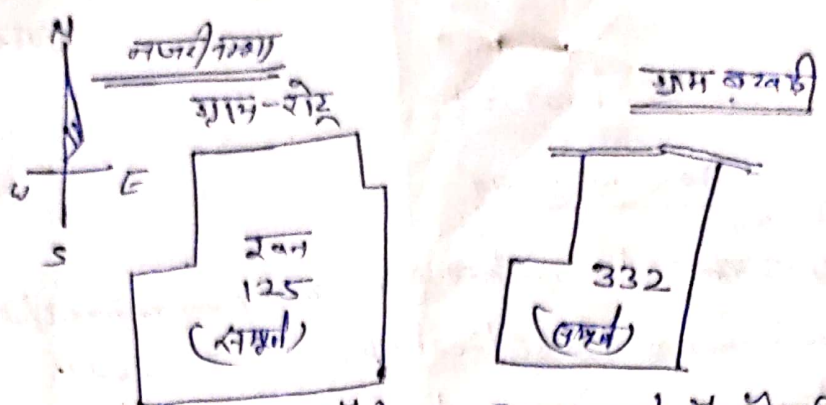 N
W E
S
नजरी नक्शा
ग्राम - रोटू
125
(सम्पूर्ण)
ग्राम
332
(सम्पूर्ण)